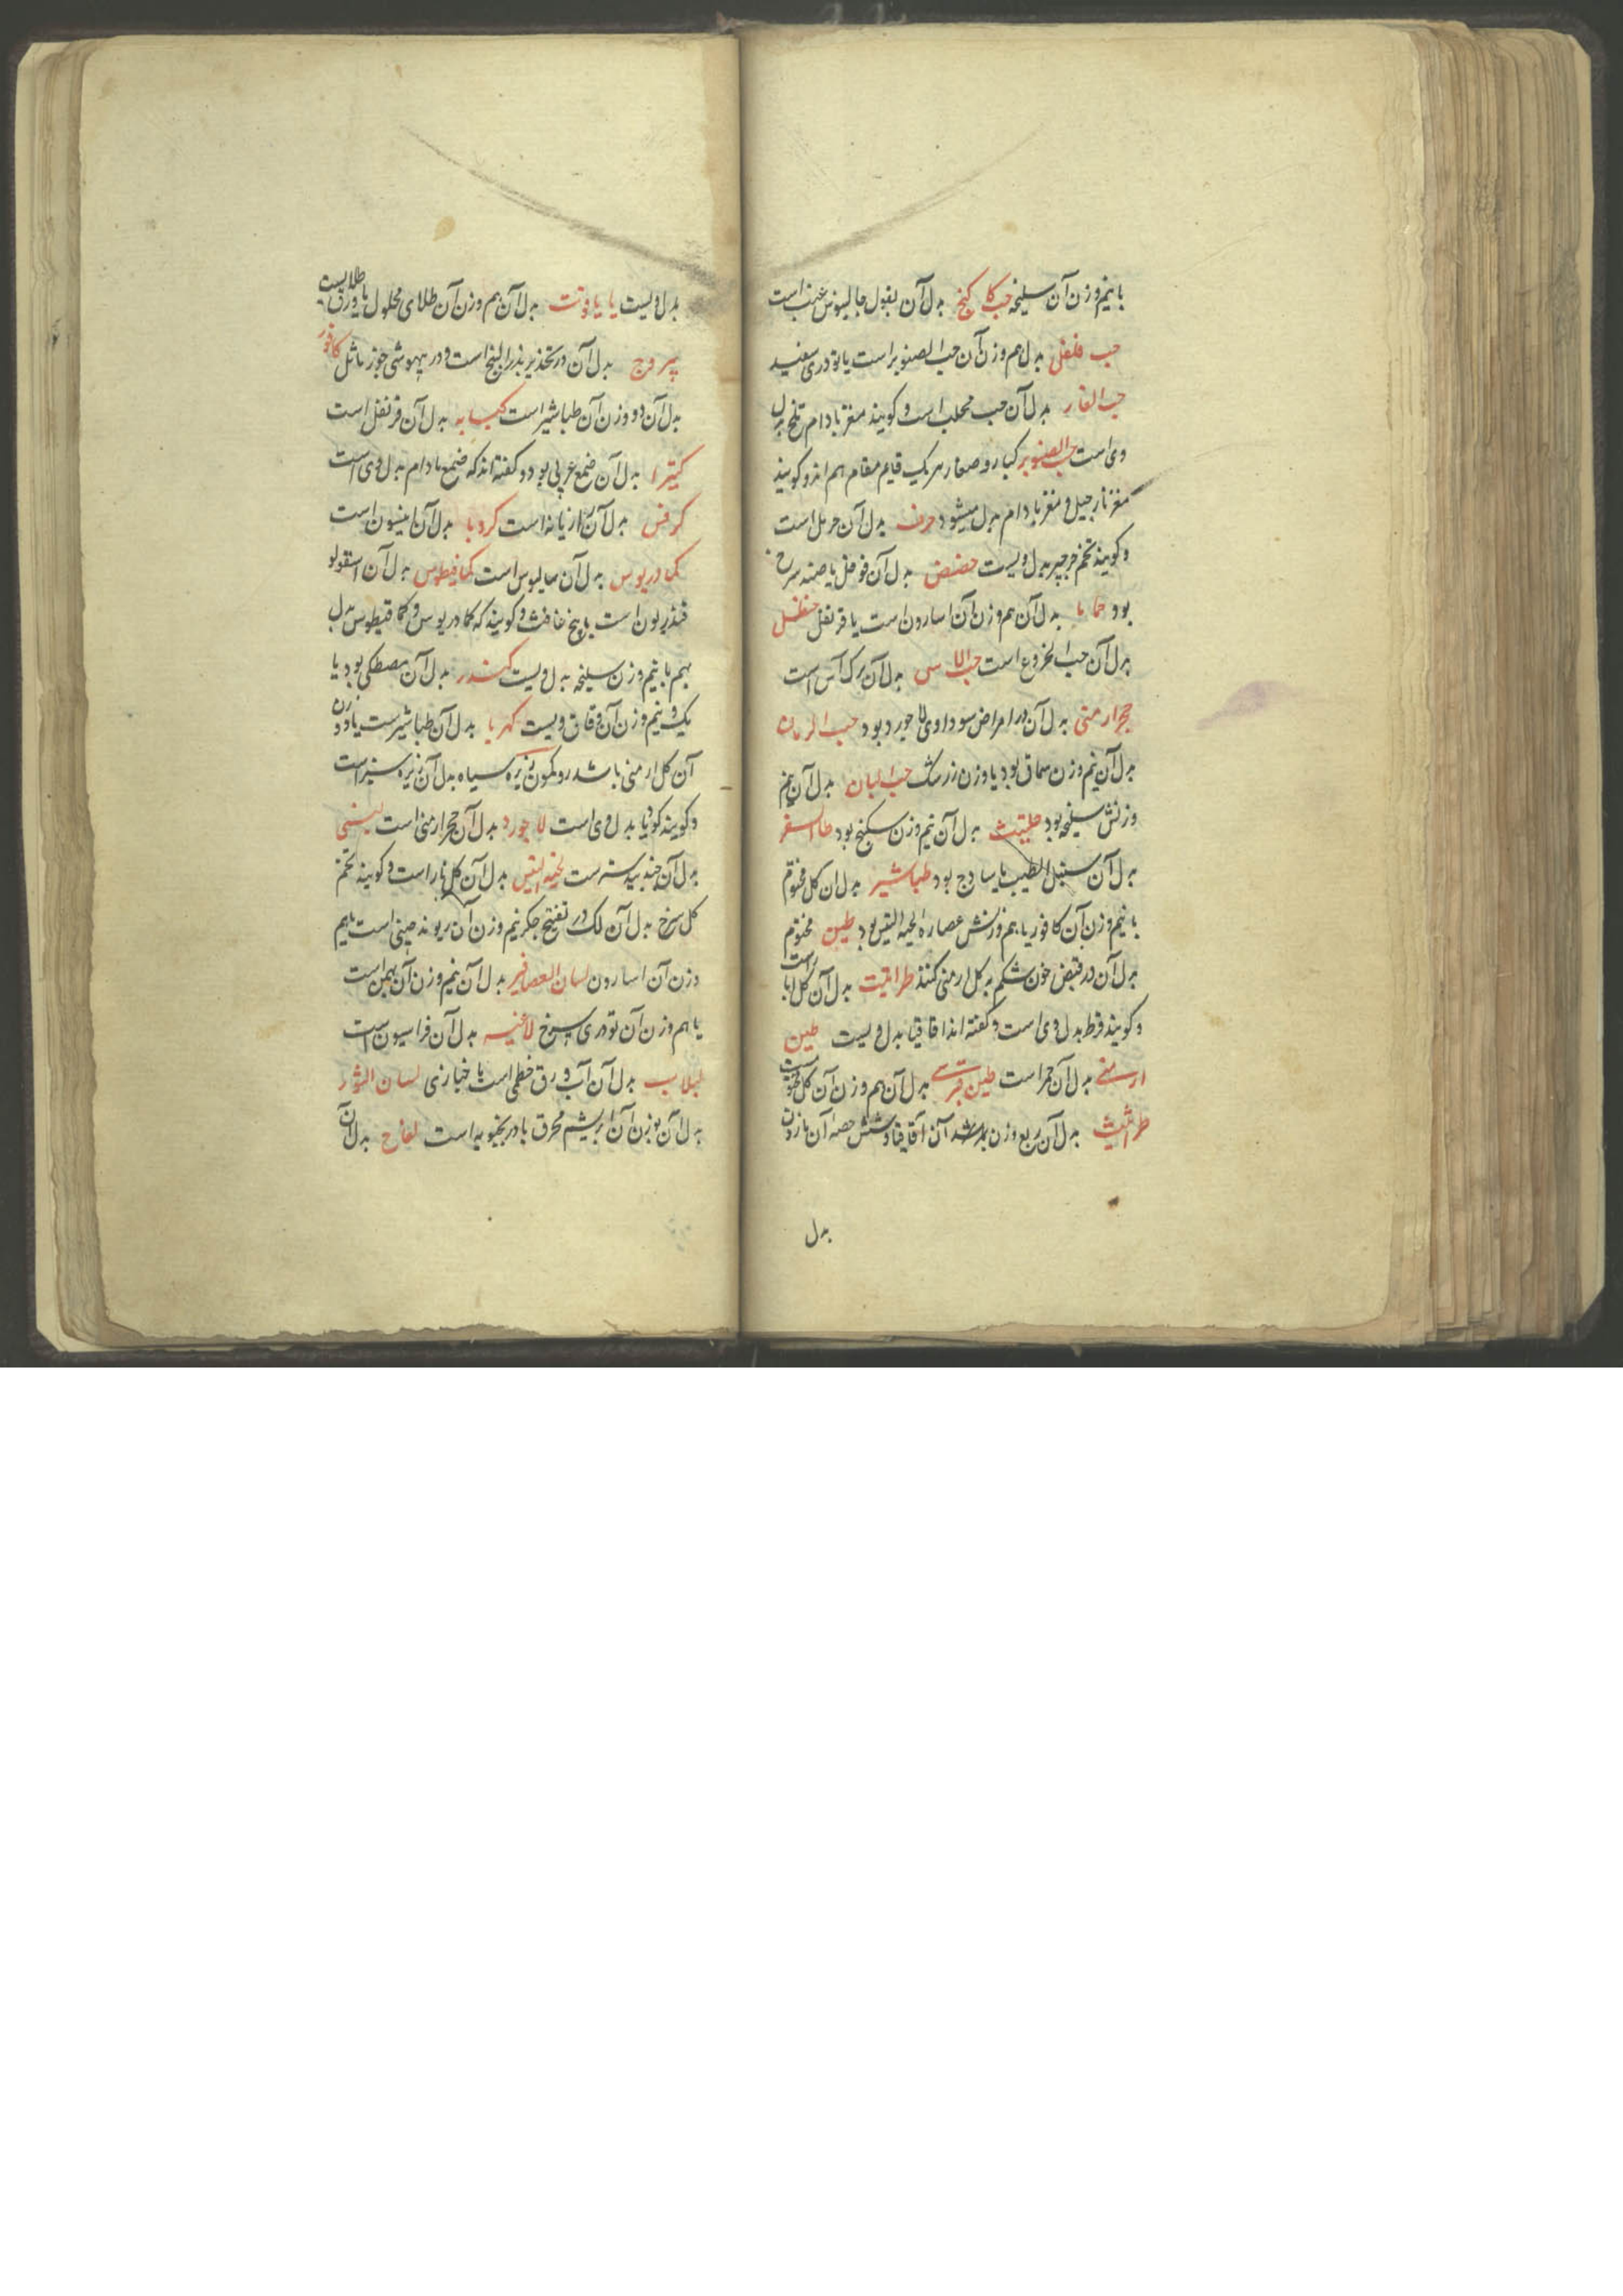 با نیم وزن آن سلیخه حب کاکنج بدل آن بقول جالینوس عنب است
حب فلفل بدل هم وزن آن حب الصنوبر است یا تودری سفید
حب الغار بدل آن حب محلب است و کویند مغز بادام تلخ بدل
وی است حب الصنوبر کبار و صغار هر یک قایم مقام هم اند و کویند
مغز نارجیل و مغز بادام بدل میشود حرف بدل آن حرمل است
و کویند تخم جرجیر بدل ویست حضض بدل آن فوفل یا صندل سرخ
بود حماما بدل آن هم وزن آن اسارون است یا قرنفل حنظل
بدل آن حب الخروع است حب الاس بدل آن برک آس است
حجر ارمنی بدل آن در امراض سوداوی لاجورد بود حب الرمان
بدل آن نیم وزن سماق بود یا وزن زرشک حب البان بدل آن نیم
وزنش سلیخه بود حلتیث بدل آن نیم وزن سکبنج بود
بدل آن سنبل الطیب یا ساذج بود طباشیر بدل ان کل مختوم
با نیم وزن آن کافور یا هم وزنش عصاره لحیة التیس بود طین مختوم
بدل آن در قبض خون شکم به کل ارمنی کنند بدل آن کل
و کویند قرط بدل وی است و کفته اند اقاقیا بدل ویست طین
ارمنی بدل آن است طین بدل آن هم وزن آن کل
طراثیث بدل آن ربع وزن آن اقاقیا و شش حصه آن
بدل
بدل ویست یا یاقوت بدل آن هم وزن آن طلای محلول یا ورق طلا ست
یبروج بدل آن در تخدیر بذر البنج است و در بیهوشی جوز ماثل کافور
بدل آن دو وزن آن طباشیر است کبابه بدل آن قرنفل است
کتیرا بدل آن صمغ عربی بود و کفته اند که صمغ بادام بدل وی است
کرفس بدل آن رازیانه است کرویا بدل آن انیسون است
کمادریوس بدل آن است کمافیطوس بدل آن اسقولو
قندریون است یا بیخ غافث و کویند که کمادریوس و کمافیطوس بدل
بهم با نیم وزن سلیخه بدل ویست کندر بدل آن مصطکی بود یا
یک و نیم وزن آن دقاق ویست کهربا بدل آن طباشیر ست یا دو وزن
آن کل ارمنی باشد و کمون زیره سیاه بدل آن زیره سبز است
و کویند کرویا بدل وی است لاجورد بدل آن حجر ارمنی است
بدل آن جندبیدستر ست لحیة التیس بدل آن کلنار است و کویند تخم
کل سرخ بدل آن لک در تفتیح جکر نیم وزن آن ریوند چینی است با هم
وزن آن اسارون لسان العصافیر بدل آن نیم وزن آن بهمن است
یا هم وزن آن تودری سرخ لاغیه بدل آن فراسیون است
لبلاب بدل آن آب ورق خطمی است یا خبازی لسان الثور
بدل آن بوزن آن ابریشم محرق بادرنجبویه است لفاح بدل آن